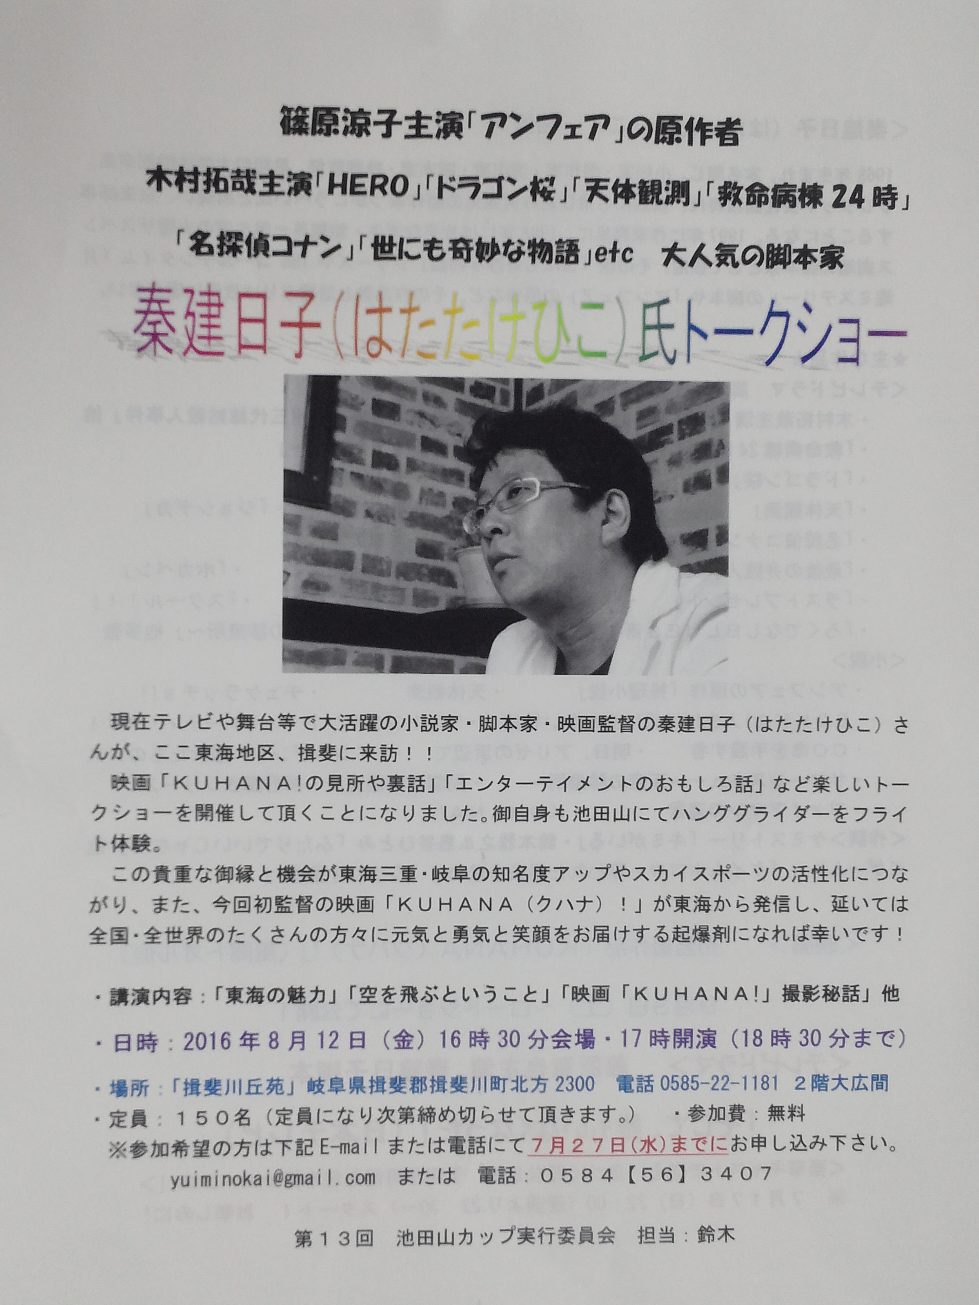 篠原涼子主演「アンフェア」の原作者
木村拓哉主演「HERO」「ドラゴン桜」「天体観測」「救命病棟24時」
「名探偵コナン」「世にも奇妙な物語」etc 大人気の脚本家
秦建日子(はたたけひこ)氏トークショー
現在テレビや舞台等で大活躍の小説家・脚本家・映画監督の秦建日子（はたたけひこ）さ
んが、ここ東海地区、揖斐に来訪！！
映画「ＫＵＨＡＮＡ!の見所や裏話」「エンターテイメントのおもしろ話」など楽しいトー
クショーを開催して頂くことになりました。御自身も池田山にてハンググライダーをフライ
ト体験。
この貴重な御縁と機会が東海三重・岐阜の知名度アップやスカイスポーツの活性化につな
がり、また、今回初監督の映画「ＫＵＨＡＮＡ（クハナ）！」が東海から発信し、延いては
全国・全世界のたくさんの方々に元気と勇気と笑顔をお届けする起爆剤になれば幸いです！
・講演内容：「東海の魅力」「空を飛ぶということ」「映画「ＫＵＨＡＮＡ!」撮影秘話」他
・日時：2016年8月12日（金）16時30分会場・17時開演（18時30分まで）
・場所：「揖斐川丘苑」岐阜県揖斐郡揖斐川町北方2300 電話0585-22-1181 ２階大広間
・定員：１５０名（定員になり次第締め切らせて頂きます。） ・参加費：無料
※参加希望の方は下記E-mailまたは電話にて７月２７日(水)までにお申し込み下さい。
yuiminokai@gmail.com または 電話：０５８４【５６】３４０７
第１３回 池田山カップ実行委員会 担当：鈴木